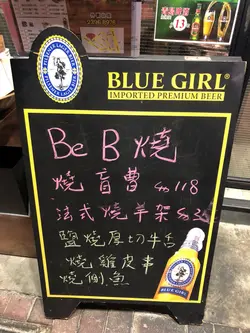 BLUE GIRL
IMPORTED PREMIUM BEER
Be B 燒
燒盲曹 $118
法式燒羊架
鹽燒厚切牛舌
燒雞皮串
燒侧魚
BLUE GIRL
13